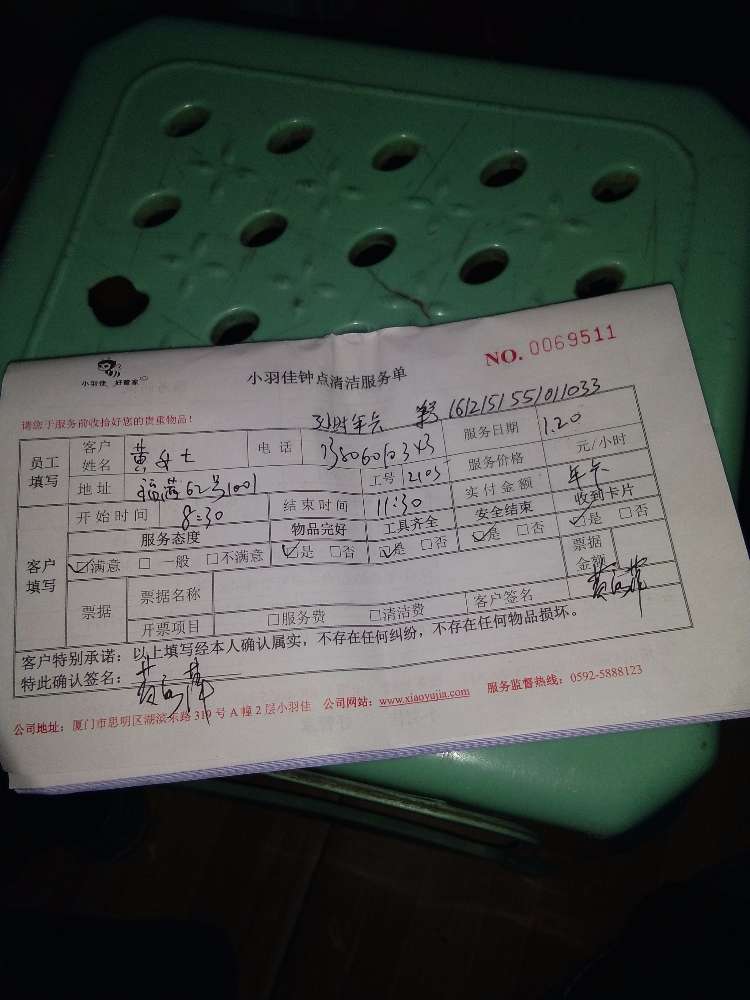 小羽佳 好管家
小羽佳钟点清洁服务单
NO. 0069511
请您于服务前收拾好您的贵重物品！
年卡 1612151551011033
员工填写 客户姓名 黄女士 电话 服务日期 1.20
地址 62号1001 工号 2103 服务价格 元/小时
客户填写 开始时间 8:30 结束时间 11:30 实付金额 年卡
服务态度 物品完好 工具齐全 安全结束 收到卡片
☑满意 □一般 □不满意 ☑是 □否 ☑是 □否 ☑是 □否 ☑是 □否
票据 票据名称 票据金额
开票项目 □服务费 □清洁费 客户签名
客户特别承诺：以上填写经本人确认属实，不存在任何纠纷，不存在任何物品损坏。
特此确认签名：
公司地址：厦门市思明区湖滨东路319号A幢2层小羽佳 公司网站：www.xiaoyujia.com 服务监督热线：0592-5888123